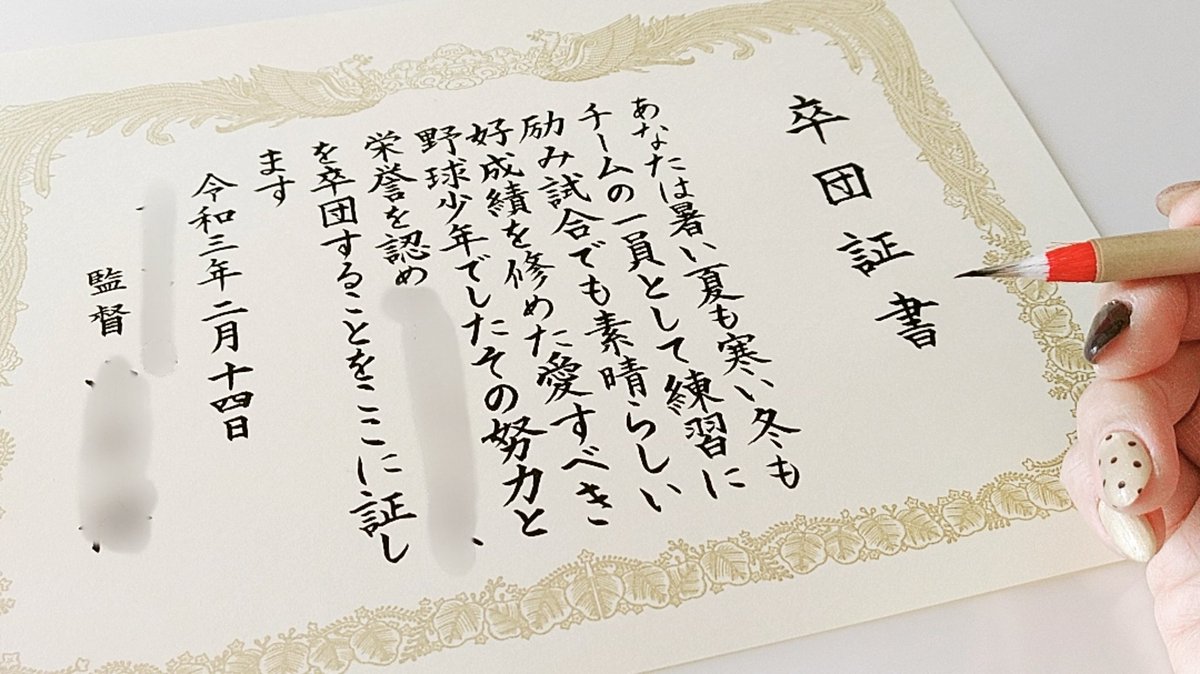 卒団証書
あなたは暑い夏も寒い冬も
チームの一員として練習に
励み試合でも素晴らしい
好成績を修めた愛すべき
野球少年でしたその努力と
栄誉を認め
を卒団することをここに証し
ます
令和三年二月十四日
監督